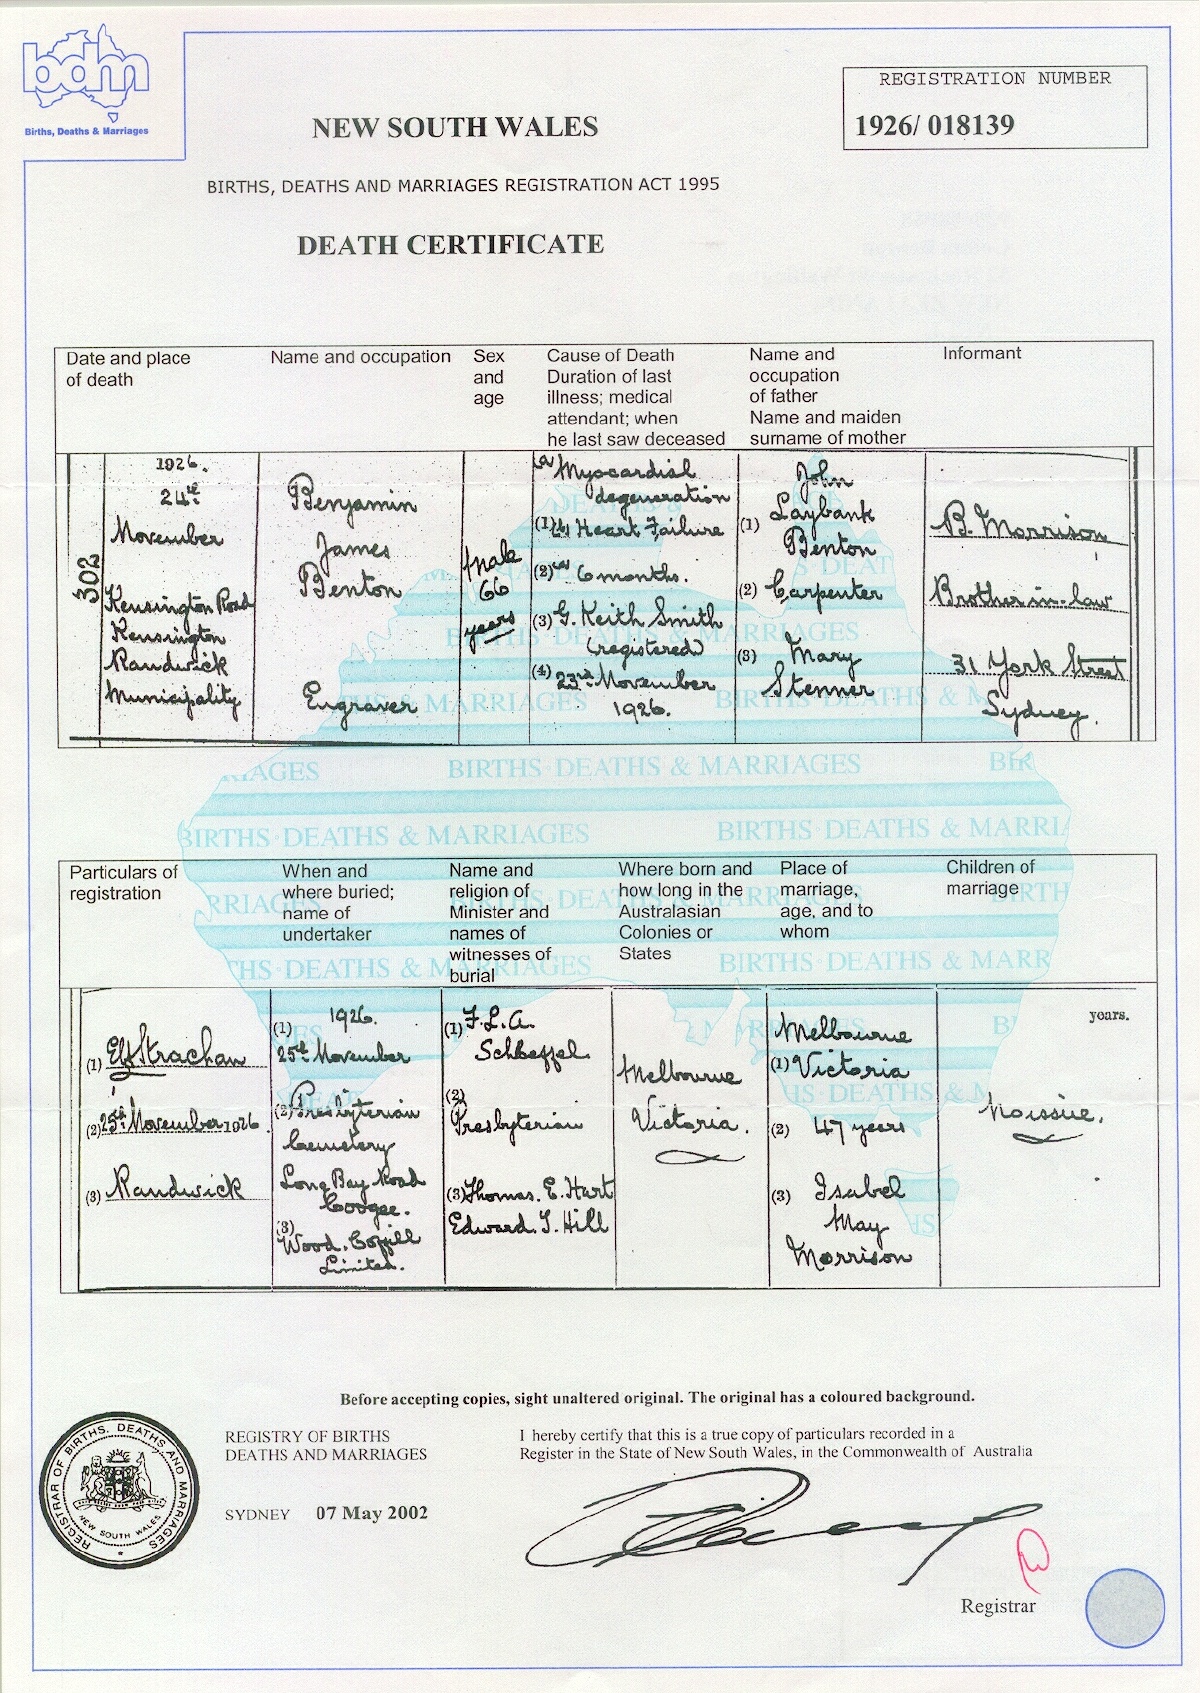 bdm
Births, Deaths & Marriages
REGISTRATION NUMBER
1926/ 018139
NEW SOUTH WALES
BIRTHS, DEATHS AND MARRIAGES REGISTRATION ACT 1995
DEATH CERTIFICATE
Date and place
of death
Name and occupation
Sex
and
age
Cause of Death
Duration of last
illness; medical
attendant; when
he last saw deceased
Name and
occupation
of father
Name and maiden
surname of mother
Informant
302
1926.
24th
November
Kensington Road
Kensington
Randwick
Municipality
Benjamin
James
Benton
Engraver
Male
66
years
(a) Myocardial
degeneration
(1) Heart Failure
(2) 6 months.
(3) G. Keith Smith
(registered)
(4) 23rd November
1926.
John
(1) Laybank
Benton
(2) Carpenter
(3) Mary
Stenner
B. Morrison
Brother-in-law
31 York Street
Sydney.
Particulars of
registration
When and
where buried;
name of
undertaker
Name and
religion of
Minister and
names of
witnesses of
burial
Where born and
how long in the
Australasian
Colonies or
States
Place of
marriage,
age, and to
whom
Children of
marriage
(1) Strachan
(2) 25th November 1926
(3) Randwick
(1) 1926.
25th November
(2) Presbyterian
Cemetery
Long Bay Road
Coogee.
(3)
Wood. Coffill
Limited.
(1) F.L.A.
Scheffel
(2)
Presbyterian
(3) Thomas. E. Hart
Edward. J. Hill
Melbourne
Victoria.
Melbourne
(1) Victoria
(2) 47 years
(3) Isabel
May
Morrison
years.
No issue.
BIRTHS · DEATHS & MARRIAGES
BIRTHS · DEATHS & MARRIAGES
Before accepting copies, sight unaltered original. The original has a coloured background.
REGISTRAR OF BIRTHS, DEATHS AND MARRIAGES
NEW SOUTH WALES
REGISTRY OF BIRTHS
DEATHS AND MARRIAGES
SYDNEY 07 May 2002
I hereby certify that this is a true copy of particulars recorded in a
Register in the State of New South Wales, in the Commonwealth of Australia
Registrar